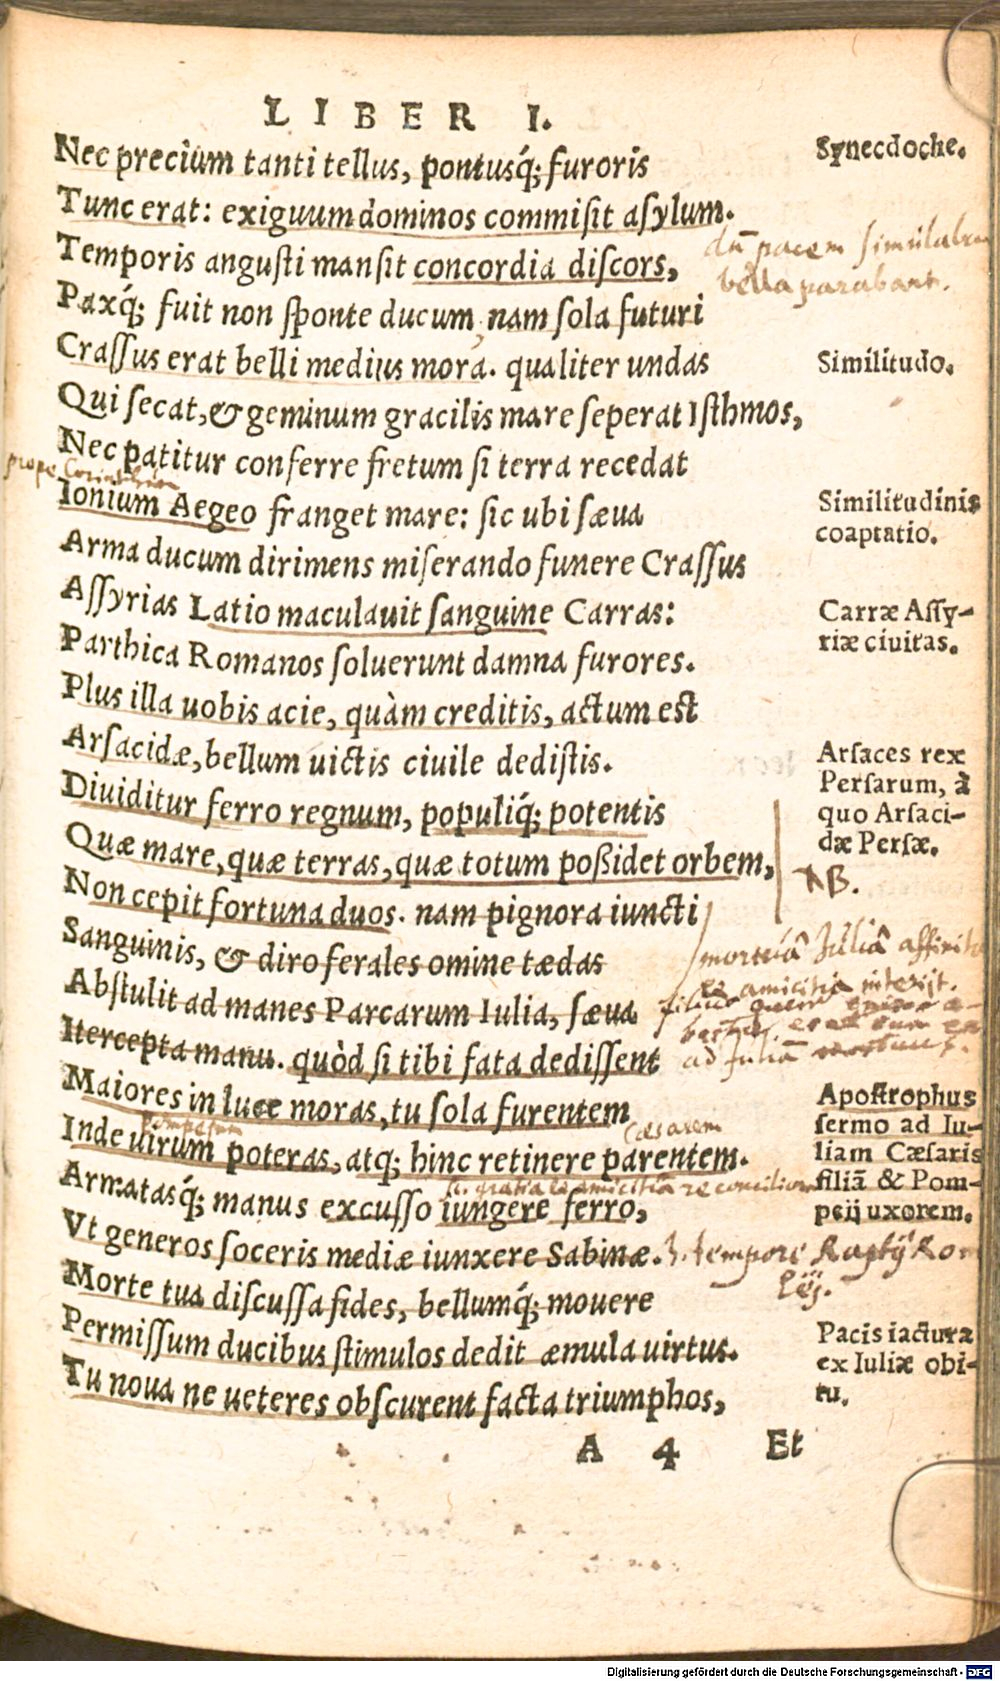 LIBER I.
Nec precium tanti tellus, pontusq́; furoris
Synecdoche.
Tunc erat: exiguum dominos commiſit aſylum.
dū pacem simulabant
bella parabant.
Temporis anguſti manſit concordia diſcors,
Paxq́; fuit non ſponte ducum, nam ſola futuri
Craſſus erat belli medius mora. qualiter undas
Similitudo.
Qui ſecat, & geminum gracilis mare ſeperat Iſthmos,
Nec patitur conferre fretum ſi terra recedat
prope Corinthum
Ionium Aegeo franget mare: ſic ubi ſæua
Similitudinis
coaptatio.
Arma ducum dirimens miſerando funere Craſſus
Aſſyrias Latio maculauit ſanguine Carras:
Carræ Aſſy-
riæ ciuitas.
Parthica Romanos ſoluerunt damna furores.
Plus illa uobis acie, quàm creditis, actum eſt
Arſacidæ, bellum uictis ciuile dediſtis.
Arſaces rex
Perſarum, à
quo Arſaci-
dæ Perſæ.
Diuiditur ferro regnum, populiq́; potentis
Quæ mare, quæ terras, quæ totum poßidet orbem,
NB.
Non cepit fortuna duos. nam pignora iuncti
Sanguinis, & diro ferales omine tædas
mortuā Juliā
amicitia interijt.
Abſtulit ad manes Parcarum Iulia, ſæua
filius quem
erat cum
ad Juliā
Itercepta manu. quòd ſi tibi fata dediſſent
Maiores in luce moras, tu ſola furentem
Apoſtrophus
ſermo ad Iu-
liam Cæſaris
filiā & Pom-
peij uxorem.
Pompeium
Cæsarem
Inde uirum poteras, atq; hinc retinere parentem.
gratia et amicitiā
Armatasq́; manus excuſſo iungere ferro,
Vt generos ſoceris mediæ iunxere Sabinæ.
tempore Rom
Morte tua diſcuſſa fides, bellumq́; mouere
Permiſſum ducibus ſtimulos dedit æmula uirtus.
Pacis iactura
ex Iuliæ obi-
tu.
Tu noua ne ueteres obſcurent facta triumphos,
A 4 Et
Digitalisierung gefördert durch die Deutsche Forschungsgemeinschaft - DFG